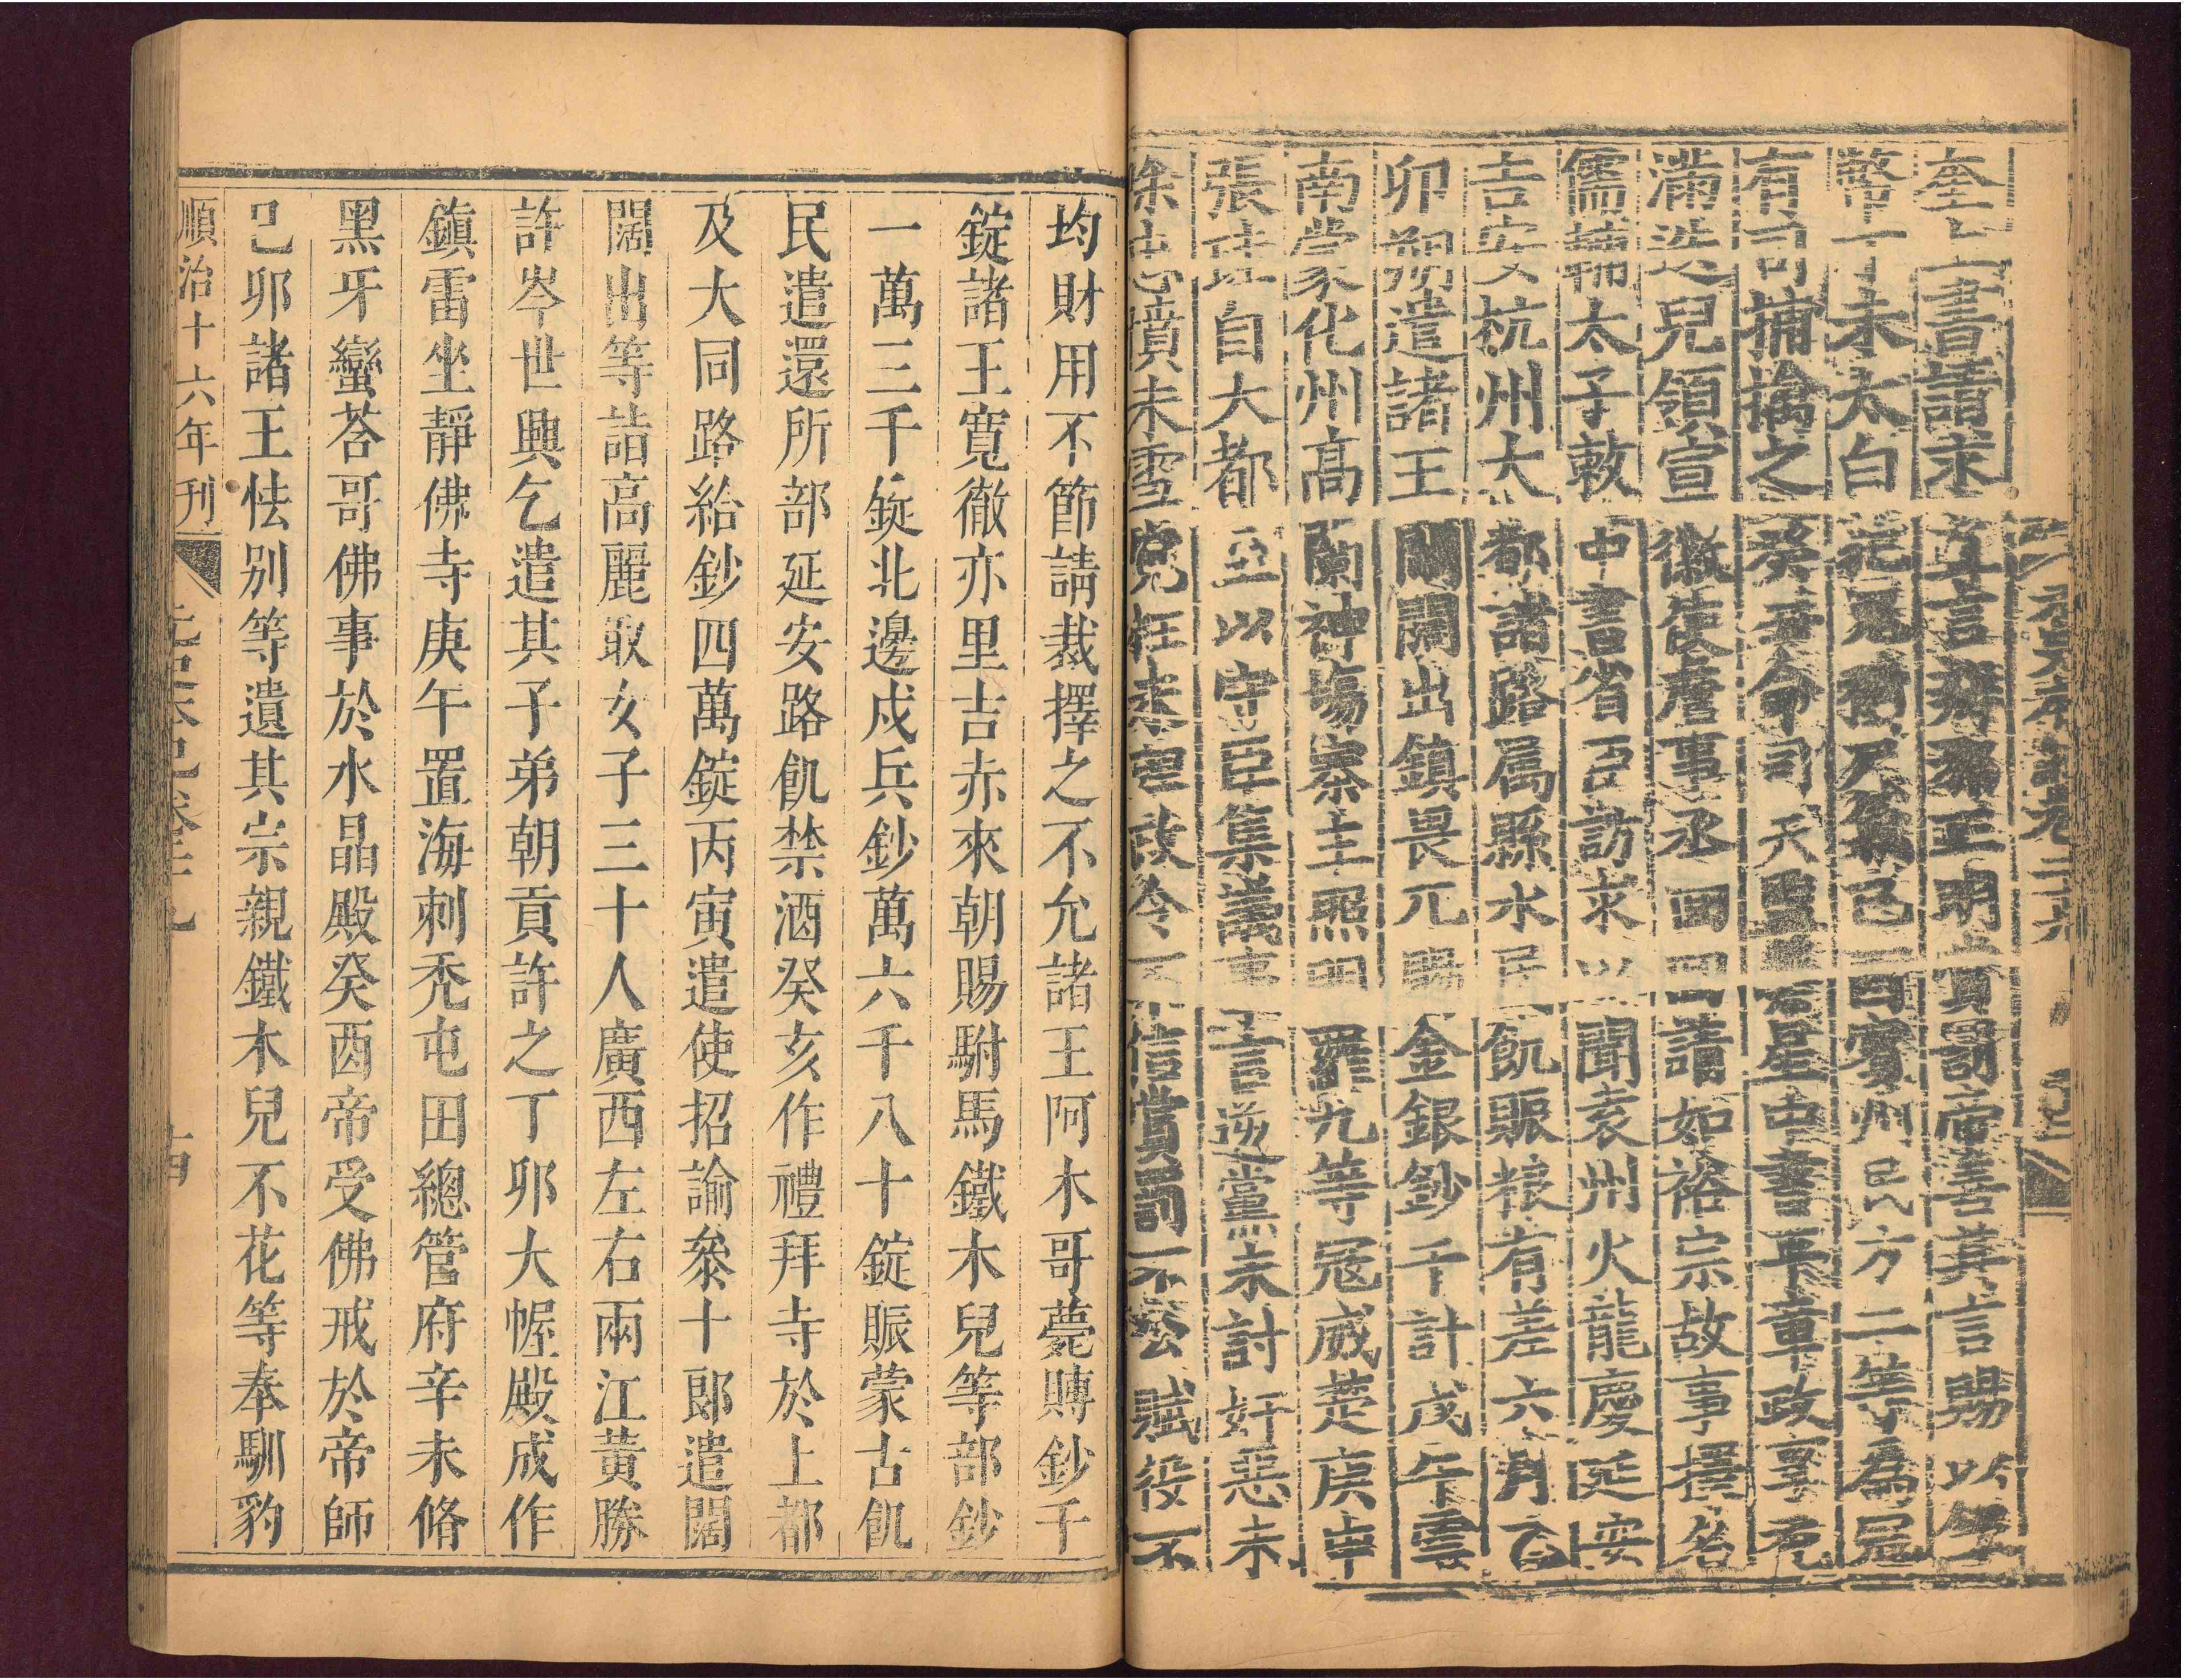 奎上書請求直言辨邪正明賞罰帝善其言賜以金
幣丁未太白犯鬼積尸氣己酉賓州民方二等爲冦
有司捕擒之癸丑命司天監禜星中書平章政事禿
滿迭兒領宣徽使詹事丞回回請如裕宗故事擇名
儒輔太子敕中書省臣訪求以聞袁州火龍慶延安
吉安杭州大都諸路屬縣水民飢賑粮有差六月乙
卯朔遣諸王闊闊出鎮畏兀賜金銀鈔千計戊午雲
南蒙化州高蘭神塲寨主照明羅九等冦威楚庚申
張珪自大都至以守臣集議事言逆黨未討奸惡未
除忠憤未雪寃枉未理政令不信賞罰不公賦役不
均財用不節請裁擇之不允諸王阿木哥薨賻鈔千
錠諸王寬徹亦里吉赤來朝賜駙馬鐵木兒等部鈔
一萬三千錠北邊戍兵鈔萬六千八十錠賑蒙古飢
民遣還所部延安路飢禁酒癸亥作禮拜寺於上都
及大同路給鈔四萬錠丙寅遣使招諭參十郎遣闊
闊出等詣高麗取女子三十人廣西左右兩江黃勝
許岑世興乞遣其子弟朝貢許之丁卯大幄殿成作
鎮雷坐靜佛寺庚午置海剌禿屯田總管府辛未脩
黑牙蠻荅哥佛事於水晶殿癸酉帝受佛戒於帝師
己卯諸王怯別等遣其宗親鐵木兒不花等奉馴豹
順治十六年刊